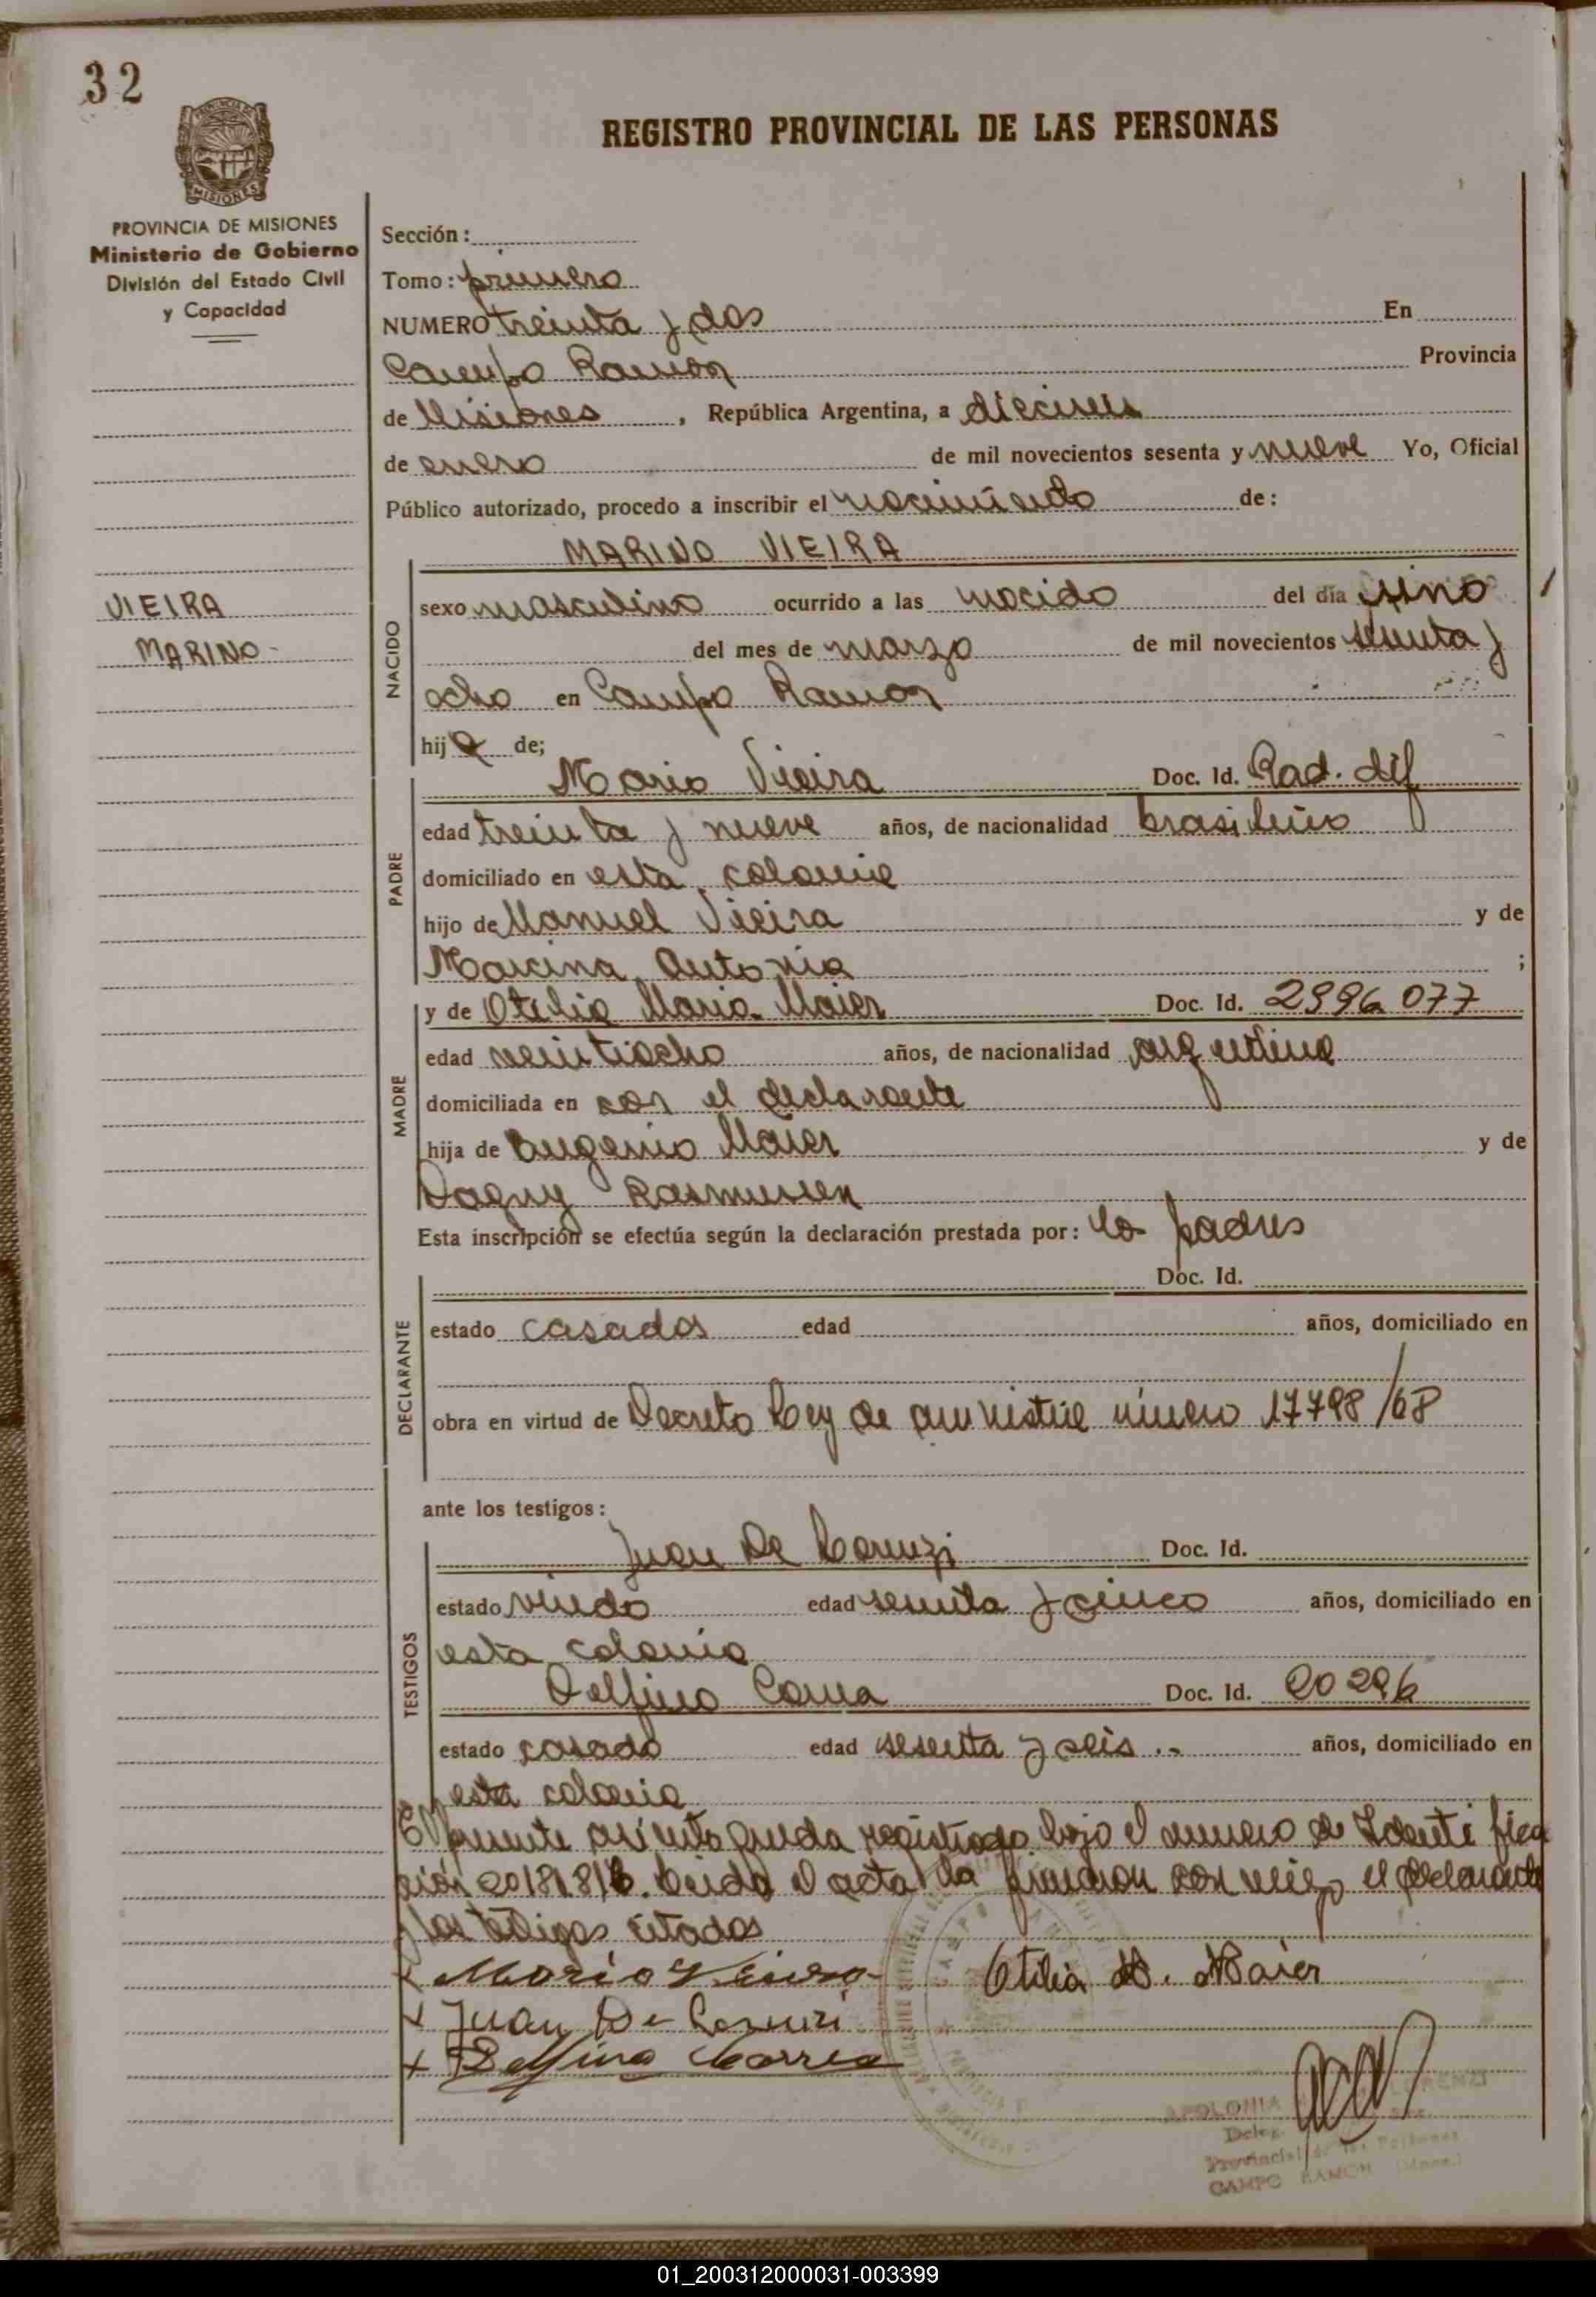 32
PROVINCIA DE
MISIONES
REGISTRO PROVINCIAL DE LAS PERSONAS
PROVINCIA DE MISIONES
Ministerio de Gobierno
División del Estado Civil
y Capacidad
VIEIRA
MARINO-
Sección:
Tomo: primero
NUMERO treinta y dos En
Campo Ramon Provincia
de Misiones, República Argentina, a dieciseis
de enero de mil novecientos sesenta y nueve Yo, Oficial
Público autorizado, procedo a inscribir el nacimiento de:
MARINO VIEIRA
NACIDO
sexo masculino ocurrido a las nacido del día
del mes de marzo de mil novecientos sesenta y
ocho en Campo Ramon
hijo de;
PADRE
Mario Vieira Doc. Id. Rad. dif
edad treinta y nueve años, de nacionalidad brasileño
domiciliado en esta colonia
hijo de Manuel Vieira y de
Antonia ;
MADRE
y de Otilia Maria Maier Doc. Id. 2996077
edad veintiocho años, de nacionalidad argentina
domiciliada en con el declarante
hija de Eugenio Maier y de
Dagny Rasmussen
Esta inscripción se efectúa según la declaración prestada por: los padres
DECLARANTE
Doc. Id.
estado casados edad años, domiciliado en
obra en virtud de Decreto Ley de amnistia número 17798/68
ante los testigos:
TESTIGOS
Juan De Lorenzi Doc. Id.
estado viudo edad sesenta y cinco años, domiciliado en
esta colonia
Delfino Correa Doc. Id. 20296
estado casado edad sesenta y seis .. años, domiciliado en
esta colonia
El presente asiento queda registrado bajo el numero de Identifica
ción Leida el acta la firmaron con migo el declarante
y los testigos citados
x Mario Vieira Otilia M. Maier
x Juan De Lorenzi
x Delfino Correa
CAMPO
APOLONIA LORENZI
Deleg.
Provincial de las Personas
CAMPO RAMON (Mnes.)
01_200312000031-003399